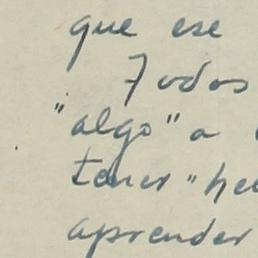 que ese
Todos
"algo" a
tener "he
aprender